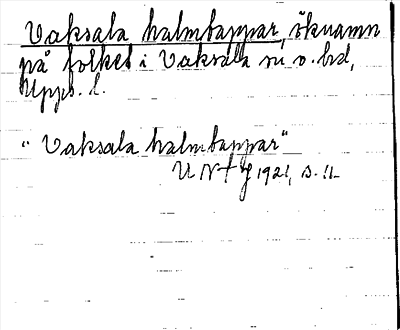 Vaksala halmtappar, öknamn
på folket i Vaksala sn o. hd,
Upps. l.
"Vaksala halmtappar"
UNT J 1921, s. 11